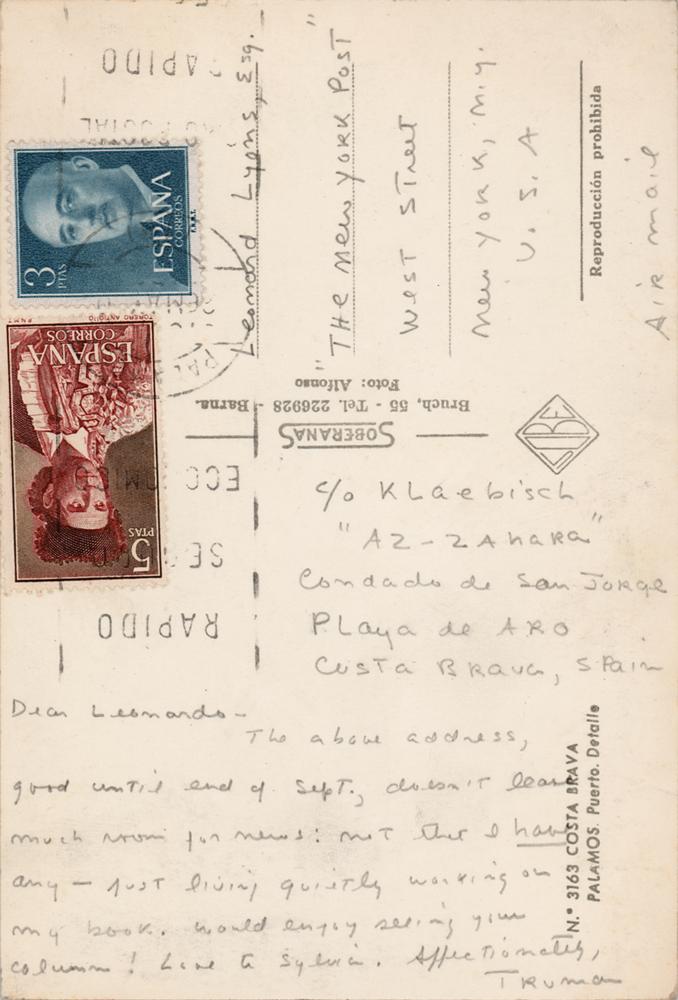 c/o Klaebisch
"AZ-ZAhara"
Condado de San Jorge
Playa de Aro
Costa Brava, Spain
Dear Leonardo-
The above address,
good until end of Sept., doesn't leave
much room for news: not that I have
any - just living quietly working on
my book. would enjoy seeing your
column! Love to Sylvia. Affectionately,
Truman
Leonard Lyons, Esq.
"THE New YORK POST"
West Street
New York, N.Y.
U. S. A
Air mail
Reproducción prohibida
Bruch, 55 - Tel. 226928 - Barna.
Foto: Alfonso
SOBERANAS
N.° 3163 COSTA BRAVA
PALAMOS. Puerto. Detalle
3 PTAS
ESPAÑA
CORREOS
F.N.M.T.
5 PTAS
ESPAÑA
CORREOS
TORERO ANTIGUO
F.N.M.T
RAPIDO
RAPIDO